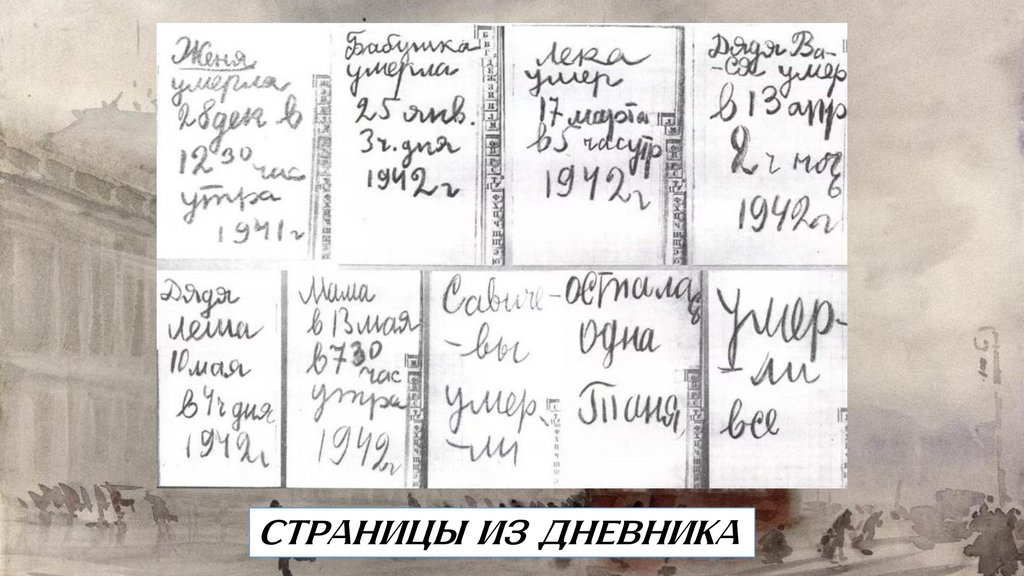 Женя
умерла
28 дек в
12 30 час
утра
1941 г
Бабушка
умерла
25 янв.
3 ч. дня
1942 г
Лека
умер
17 марта
в 5 час утр
1942 г
Дядя Ва-
-ся умер
в 13 апр
2 ч ноч
1942 г
Дядя
Леша
10 мая
в 4 ч дня
1942 г
Мама
в 13 мая
в 7 30
час
утра
1942 г
Савиче-
-вы
умер
-ли
осталась
одна
Таня
Умер-
-ли
все
СТРАНИЦЫ ИЗ ДНЕВНИКА